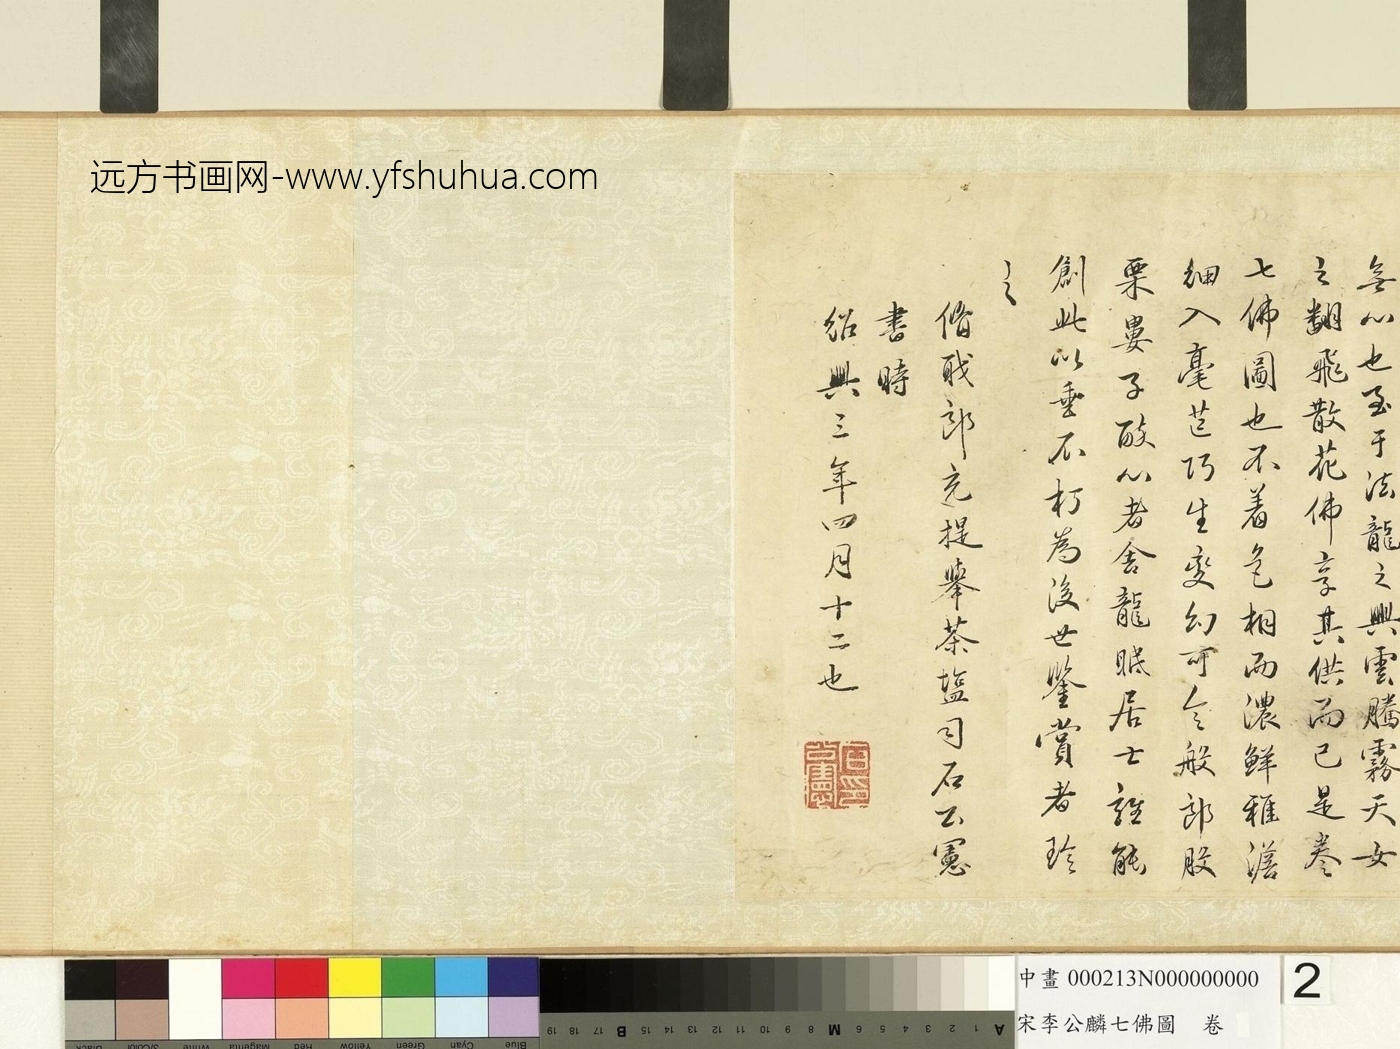 远方书画网-www.yfshuhua.com
無心也至于法龍之興雲騰霧天女
之翻飛散花佛享其供而已是卷
七佛圖也不着色相而濃鮮雅澹
細入毫芒巧生變幻可令般郎股
栗婁子酸心者舍龍眠居士誰能
創此以垂不朽為後世鑒賞者珍
之
脩職郎充提舉茶鹽司石公憲
書時
紹興三年四月十二也
中畫 000213N000000000
宋李公麟七佛圖 卷
2
Black
3/Color
White
Magenta
Red
Yellow
Green
Cyan
Blue
A 1 2 3 4 5 6 M 8 9 10 11 12 13 14 15 B 17 18 19